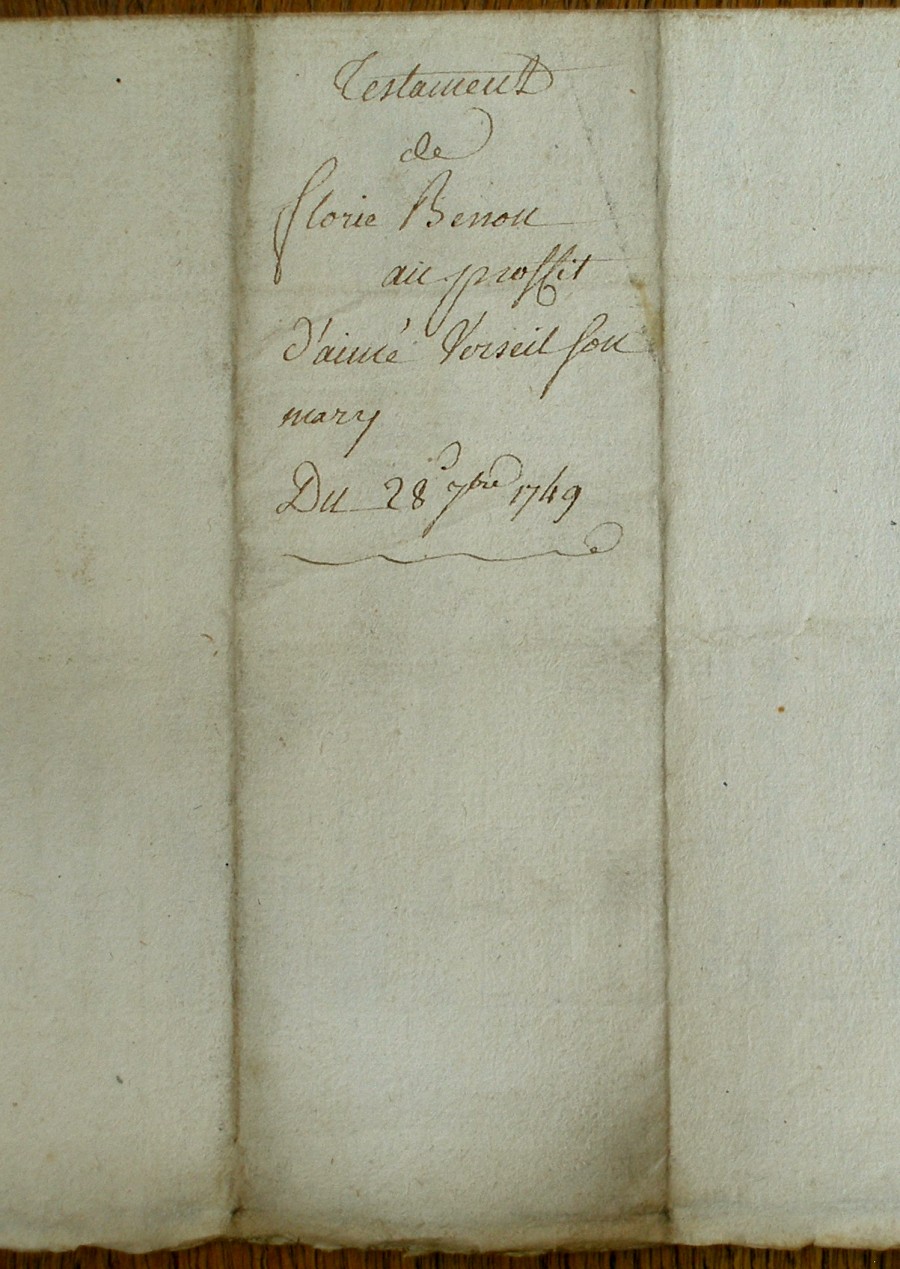 Testament
de
florie Besson
au proffit
d'aimé Verseil son
mary
Du 28e 7bre 1749